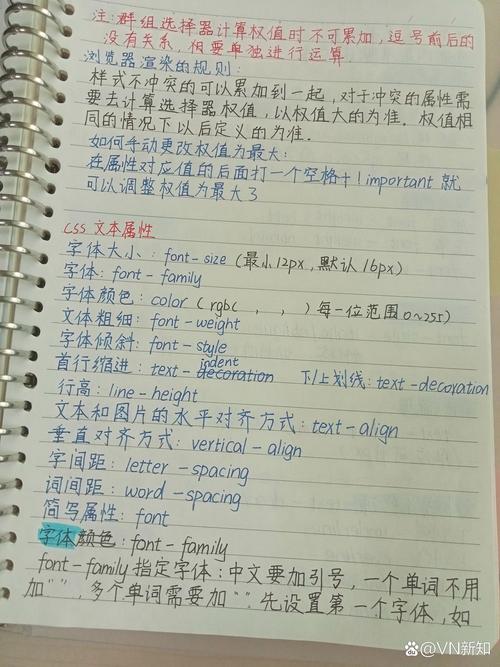 注：群组选择器计算权值时不可累加，逗号前后的
没有关系，但要单独进行运算.
浏览器渲染的规则：
样式不冲突的可以累加到一起，对于冲突的属性需
要去计算选择器权值，以权值大的为准．权值相
同的情况下以后定义的为准.
如何手动更改权值为最大：
在属性对应值的后面打一个空格+！important 就
可以调整权值为最大了
CSS 文本属性
字体大小：font-size（最小12px，默认16px）
字体：font-family
字体颜色：color（rgb( , , )每一位范围0~255）
文本粗细：font-weight
字体倾斜：font-style
首行缩进：text-indent decoration 下/上划线：text-decoration
行高：line-height
文本和图片的水平对齐方式：text-align
垂直对齐方式：vertical-align
字间距：letter-spacing
词间距：word-spacing
简写属性：font
字体颜色：font-family
font-family指定字体：中文要加引号，一个单词不用
加" "，多个单词需要加" "．先设置第一个字体，如
@VN新知